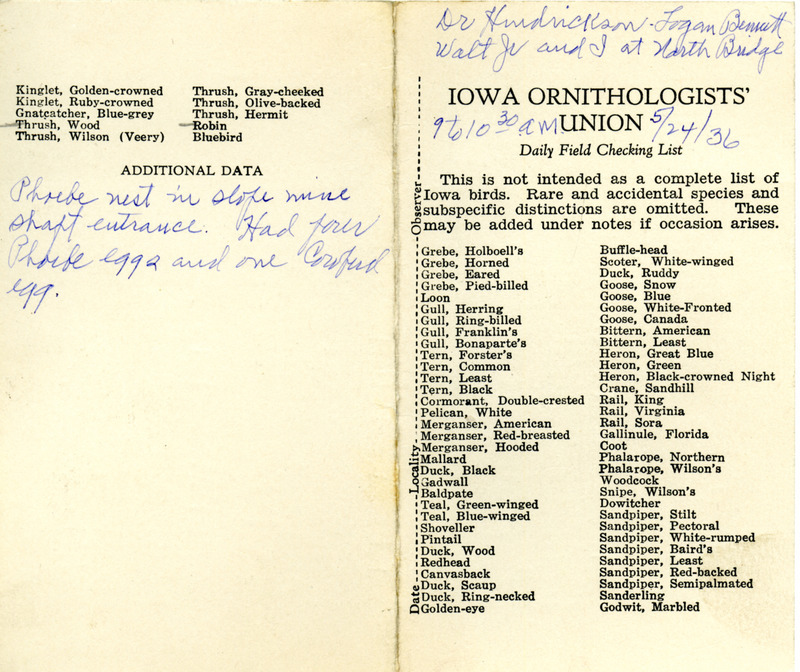 Kinglet, Golden-crowned
Kinglet, Ruby-crowned
Gnatcatcher, Blue-grey
Thrush, Wood
Thrush, Wilson (Veery)
Thrush, Gray-cheeked
Thrush, Olive-backed
Thrush, Hermit
Robin
Bluebird
ADDITIONAL DATA
Phoebe nest in slope mine
shaft entrance. Had four
Phoebe eggs and one Cowbird
egg.
Dr Hendrickson - Logan Bennett
Walt Jr and I at North Bridge
IOWA ORNITHOLOGISTS'
UNION
9 to 10 30 a m 5/24/36
Daily Field Checking List
This is not intended as a complete list of
Iowa birds. Rare and accidental species and
subspecific distinctions are omitted. These
may be added under notes if occasion arises.
Observer
Locality
Date
Grebe, Holboell's
Grebe, Horned
Grebe, Eared
Grebe, Pied-billed
Loon
Gull, Herring
Gull, Ring-billed
Gull, Franklin's
Gull, Bonaparte's
Tern, Forster's
Tern, Common
Tern, Least
Tern, Black
Cormorant, Double-crested
Pelican, White
Merganser, American
Merganser, Red-breasted
Merganser, Hooded
Mallard
Duck, Black
Gadwall
Baldpate
Teal, Green-winged
Teal, Blue-winged
Shoveller
Pintail
Duck, Wood
Redhead
Canvasback
Duck, Scaup
Duck, Ring-necked
Golden-eye
Buffle-head
Scoter, White-winged
Duck, Ruddy
Goose, Snow
Goose, Blue
Goose, White-Fronted
Goose, Canada
Bittern, American
Bittern, Least
Heron, Great Blue
Heron, Green
Heron, Black-crowned Night
Crane, Sandhill
Rail, King
Rail, Virginia
Rail, Sora
Gallinule, Florida
Coot
Phalarope, Northern
Phalarope, Wilson's
Woodcock
Snipe, Wilson's
Dowitcher
Sandpiper, Stilt
Sandpiper, Pectoral
Sandpiper, White-rumped
Sandpiper, Baird's
Sandpiper, Least
Sandpiper, Red-backed
Sandpiper, Semipalmated
Sanderling
Godwit, Marbled